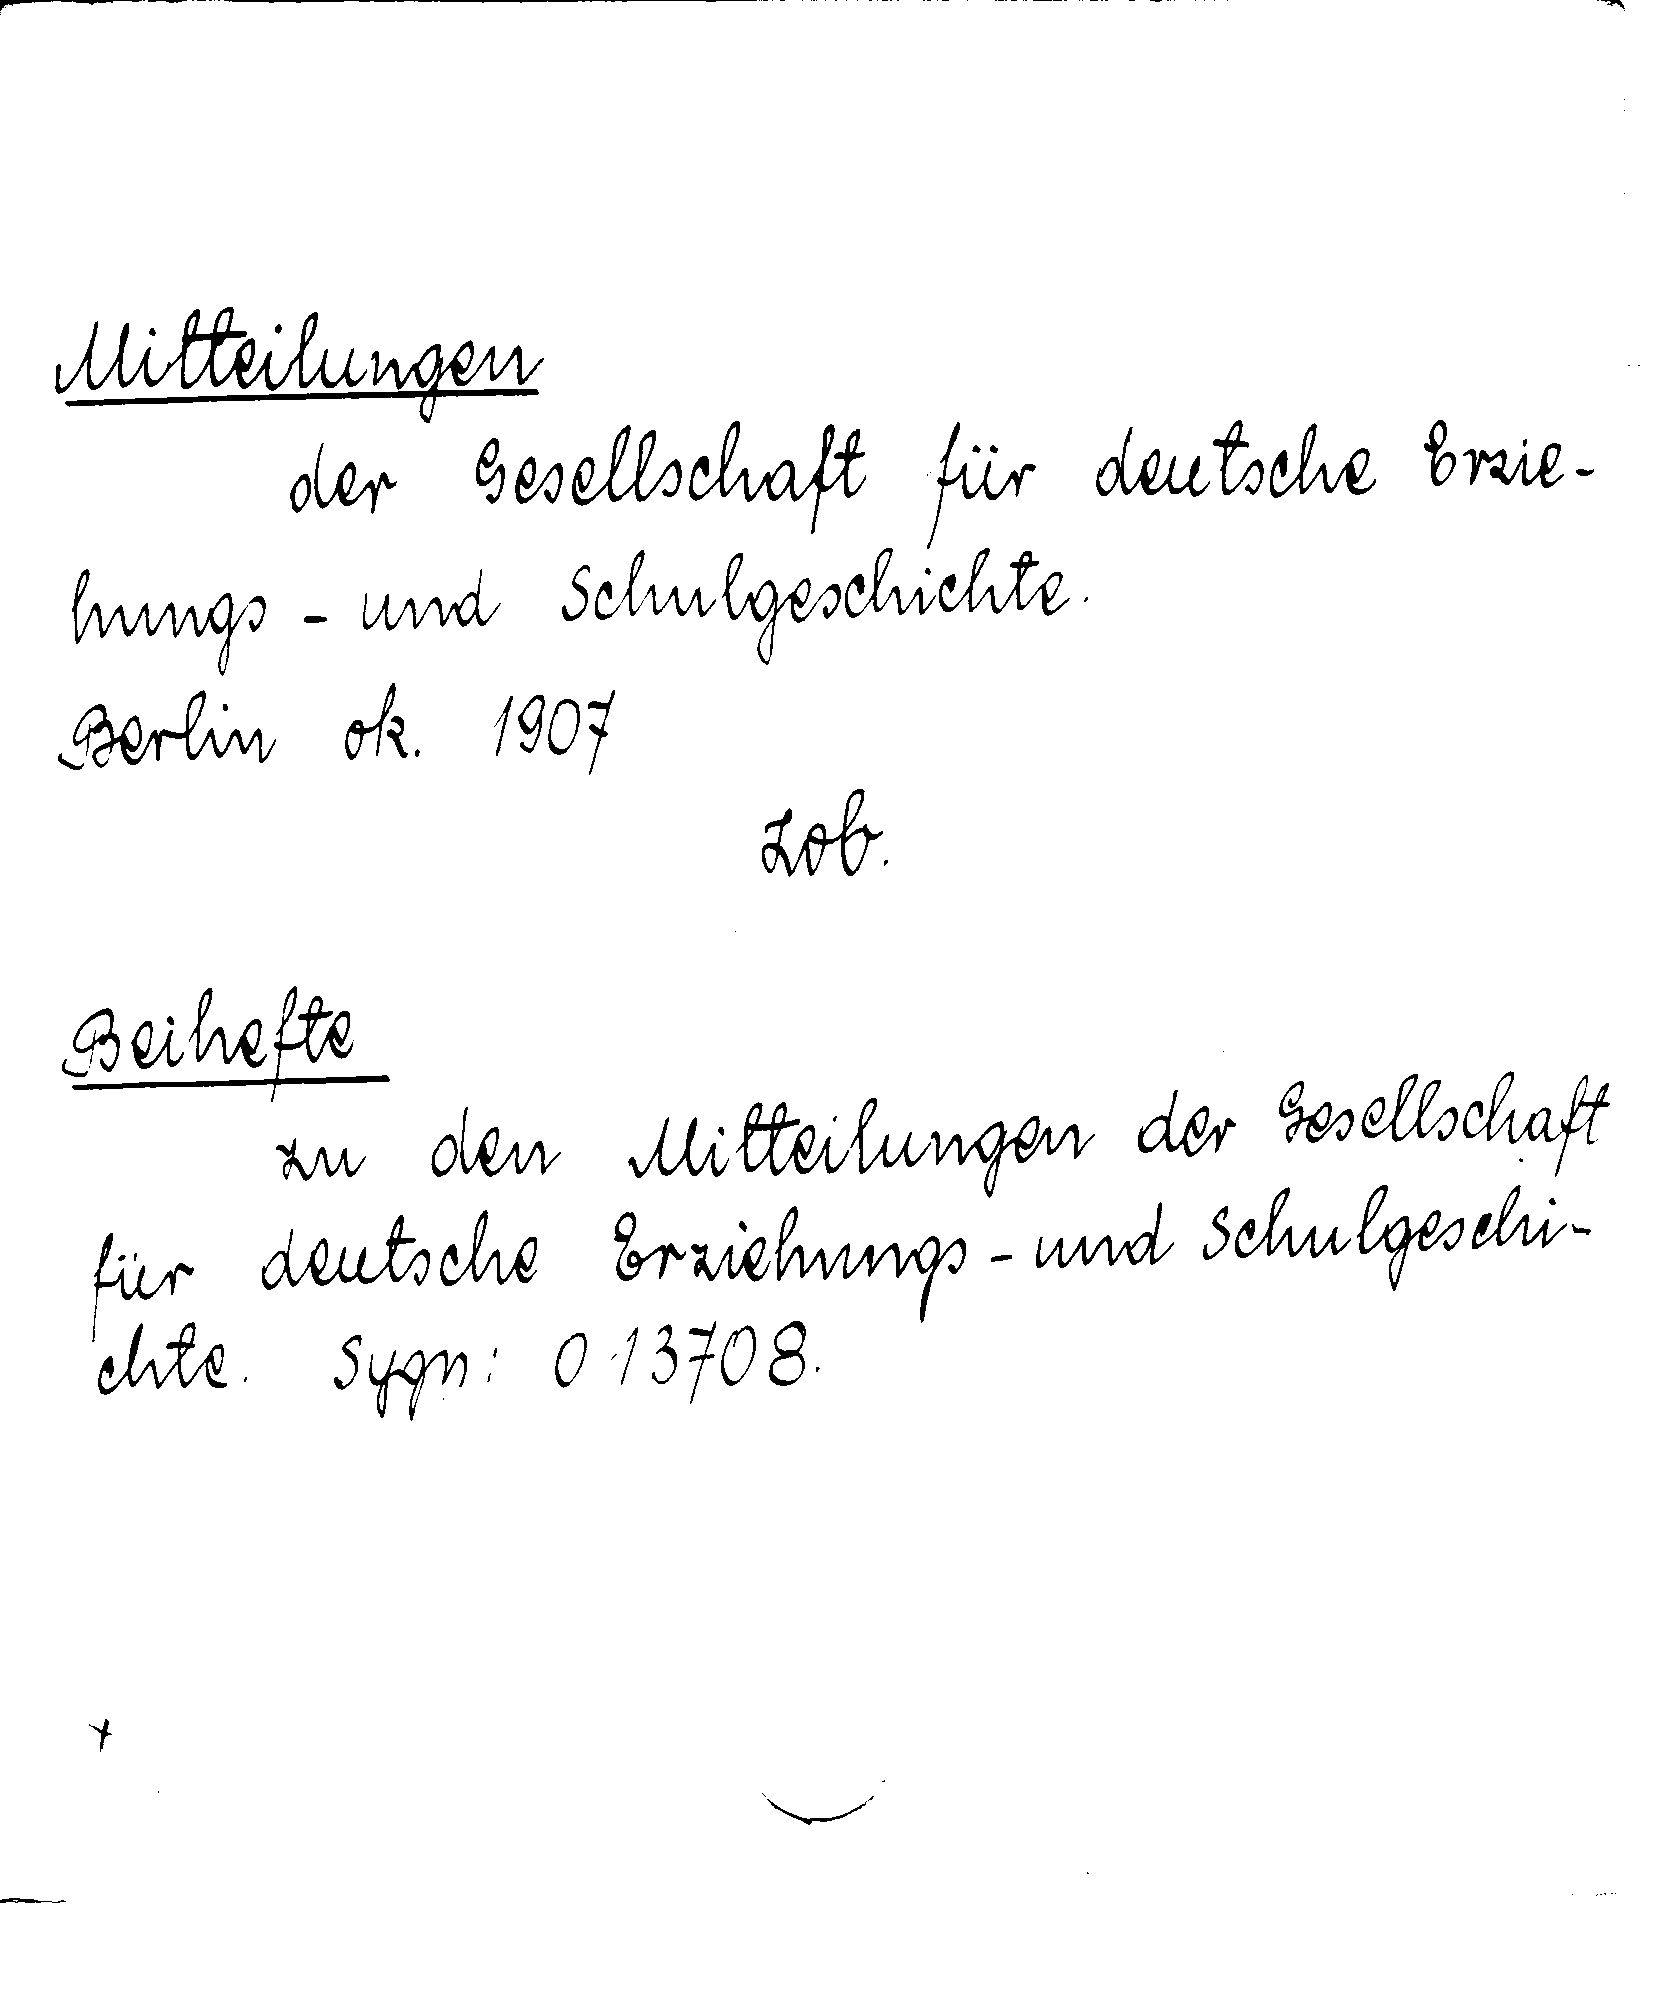 Mitteilungen
der Gesellschaft für deutsche Erzie-
hungs - und Schulgeschichte.
Berlin ok. 1907
Zob.
Beihefte
zu den Mitteilungen der Gesellschaft
für deutsche Erziehungs - und Schulgeschi-
chte. Sygn: O 13708.